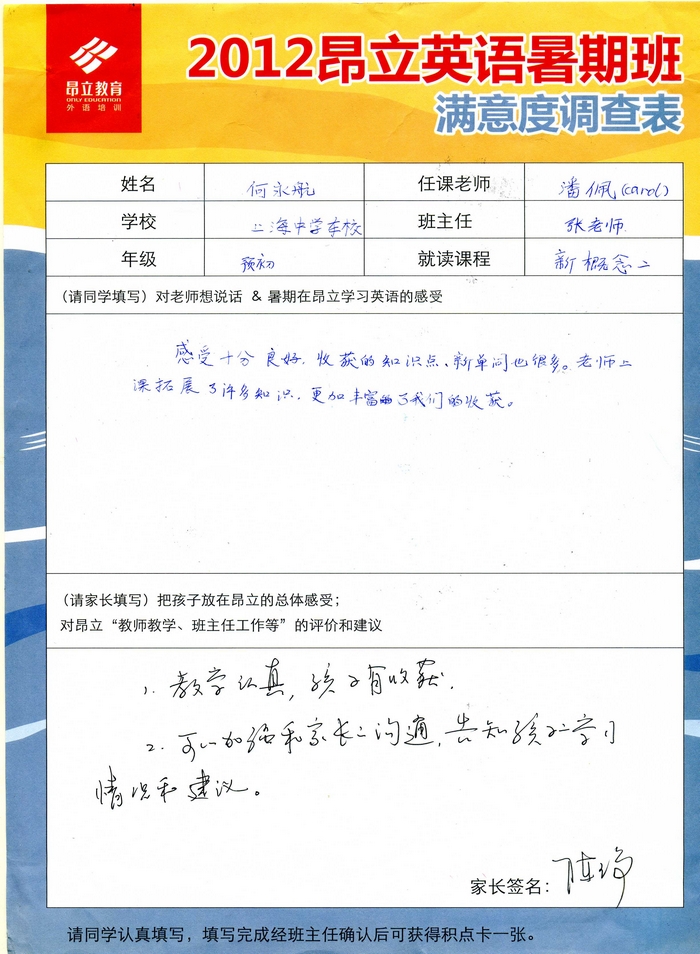 昂立教育
ONLY EDUCATION
外语培训
2012昂立英语暑期班
满意度调查表
姓名 何永航 任课老师 潘佩(carol)
学校 上海中学东校 班主任 张老师
年级 预初 就读课程 新概念二
(请同学填写)对老师想说话 & 暑期在昂立学习英语的感受
感受十分良好,收获的知识点、新单词也很多。老师上
课拓展了许多知识,更加丰富了我们的收获。
(请家长填写)把孩子放在昂立的总体感受;
对昂立“教师教学、班主任工作等”的评价和建议
1. 教学认真,孩子有收获.
2. 可以加强和家长之沟通,告知孩子学习
情况和建议。
家长签名:
请同学认真填写,填写完成经班主任确认后可获得积点卡一张。